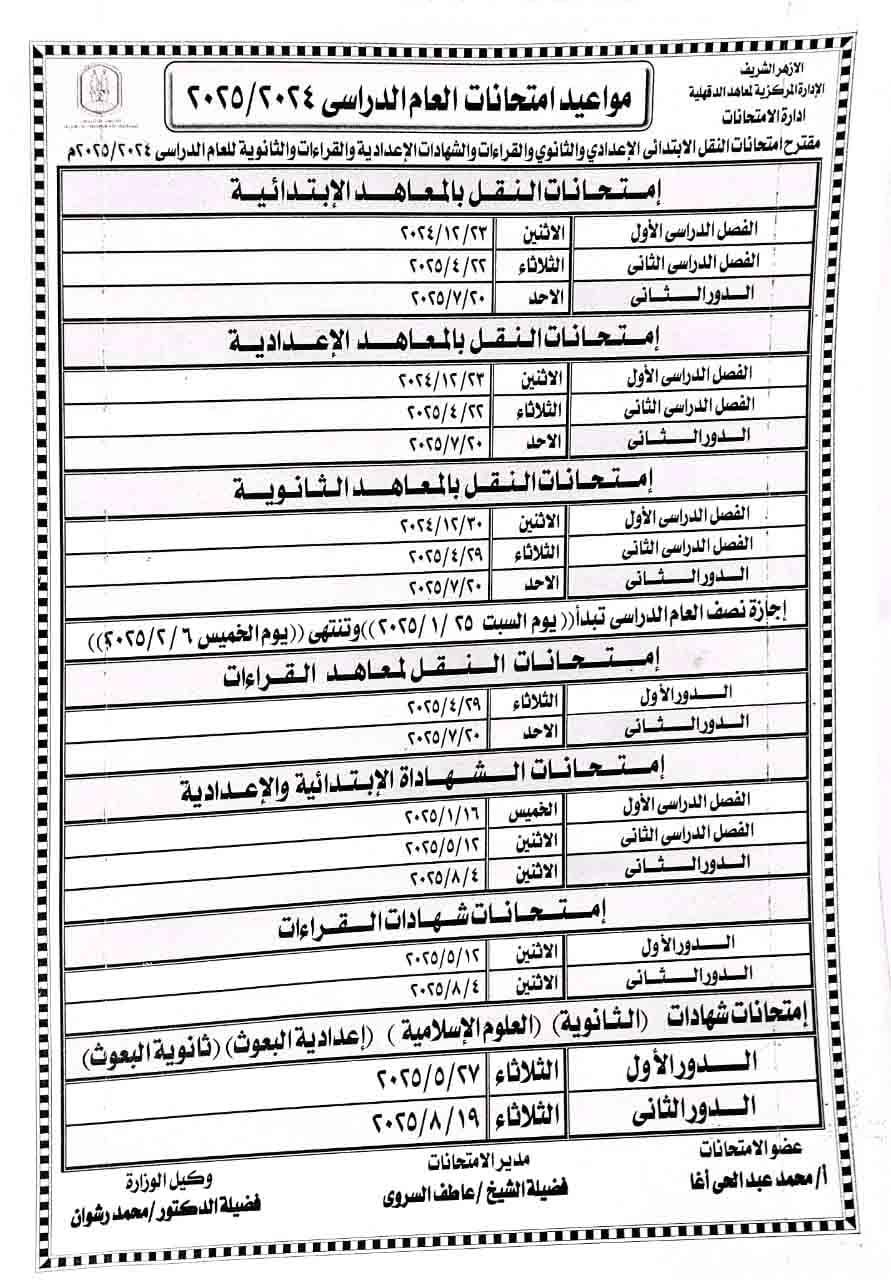 الازهر الشريف
الإدارة المركزية لمعاهد الدقهلية
ادارة الامتحانات
مواعيد امتحانات العام الدراسى ٢٠٢٥/٢٠٢٤
مقترح امتحانات النقل الابتدائى الإعدادي والثانوي والقراءات والشهادات الإعدادية والقراءات والثانوية للعام الدراسى ٢٠٢٥/٢٠٢٤م
إمتحانات النقل بالمعاهد الإبتدائية
الفصل الدراسى الأول الاثنين ٢٠٢٤/١٢/٢٣
الفصل الدراسى الثانى الثلاثاء ٢٠٢٥/٤/٢٢
الدور الثانى الاحد ٢٠٢٥/٧/٢٠
إمتحانات النقل بالمعاهد الإعدادية
الفصل الدراسى الأول الاثنين ٢٠٢٤/١٢/٢٣
الفصل الدراسى الثانى الثلاثاء ٢٠٢٥/٤/٢٢
الدور الثانى الاحد ٢٠٢٥/٧/٢٠
إمتحانات النقل بالمعاهد الثانوية
الفصل الدراسى الأول الاثنين ٢٠٢٤/١٢/٣٠
الفصل الدراسى الثانى الثلاثاء ٢٠٢٥/٤/٢٩
الدور الثانى الاحد ٢٠٢٥/٧/٢٠
إجازة نصف العام الدراسى تبدأ((يوم السبت ٢٠٢٥/١/٢٥))وتنتهى ((يوم الخميس ٢٠٢٥/٢/٦))
إمتحانات النقل لمعاهد القراءات
الدور الأول الثلاثاء ٢٠٢٥/٤/٢٩
الدور الثانى الاحد ٢٠٢٥/٧/٢٠
إمتحانات الشهاداة الإبتدائية والإعدادية
الفصل الدراسى الأول الخميس ٢٠٢٥/١/١٦
الفصل الدراسى الثانى الاثنين ٢٠٢٥/٥/١٢
الدور الثانى الاثنين ٢٠٢٥/٨/٤
إمتحانات شهادات القراءات
الدور الأول الاثنين ٢٠٢٥/٥/١٢
الدور الثانى الاثنين ٢٠٢٥/٨/٤
إمتحانات شهادات (الثانوية) (العلوم الإسلامية) (إعدادية البعوث) (ثانوية البعوث)
الدور الأول الثلاثاء ٢٠٢٥/٥/٢٧
الدور الثانى الثلاثاء ٢٠٢٥/٨/١٩
عضو الامتحانات
أ/ محمد عبد الحى أغا
مدير الامتحانات
فضيلة الشيخ/ عاطف السروى
وكيل الوزارة
فضيلة الدكتور/ محمد رشوان